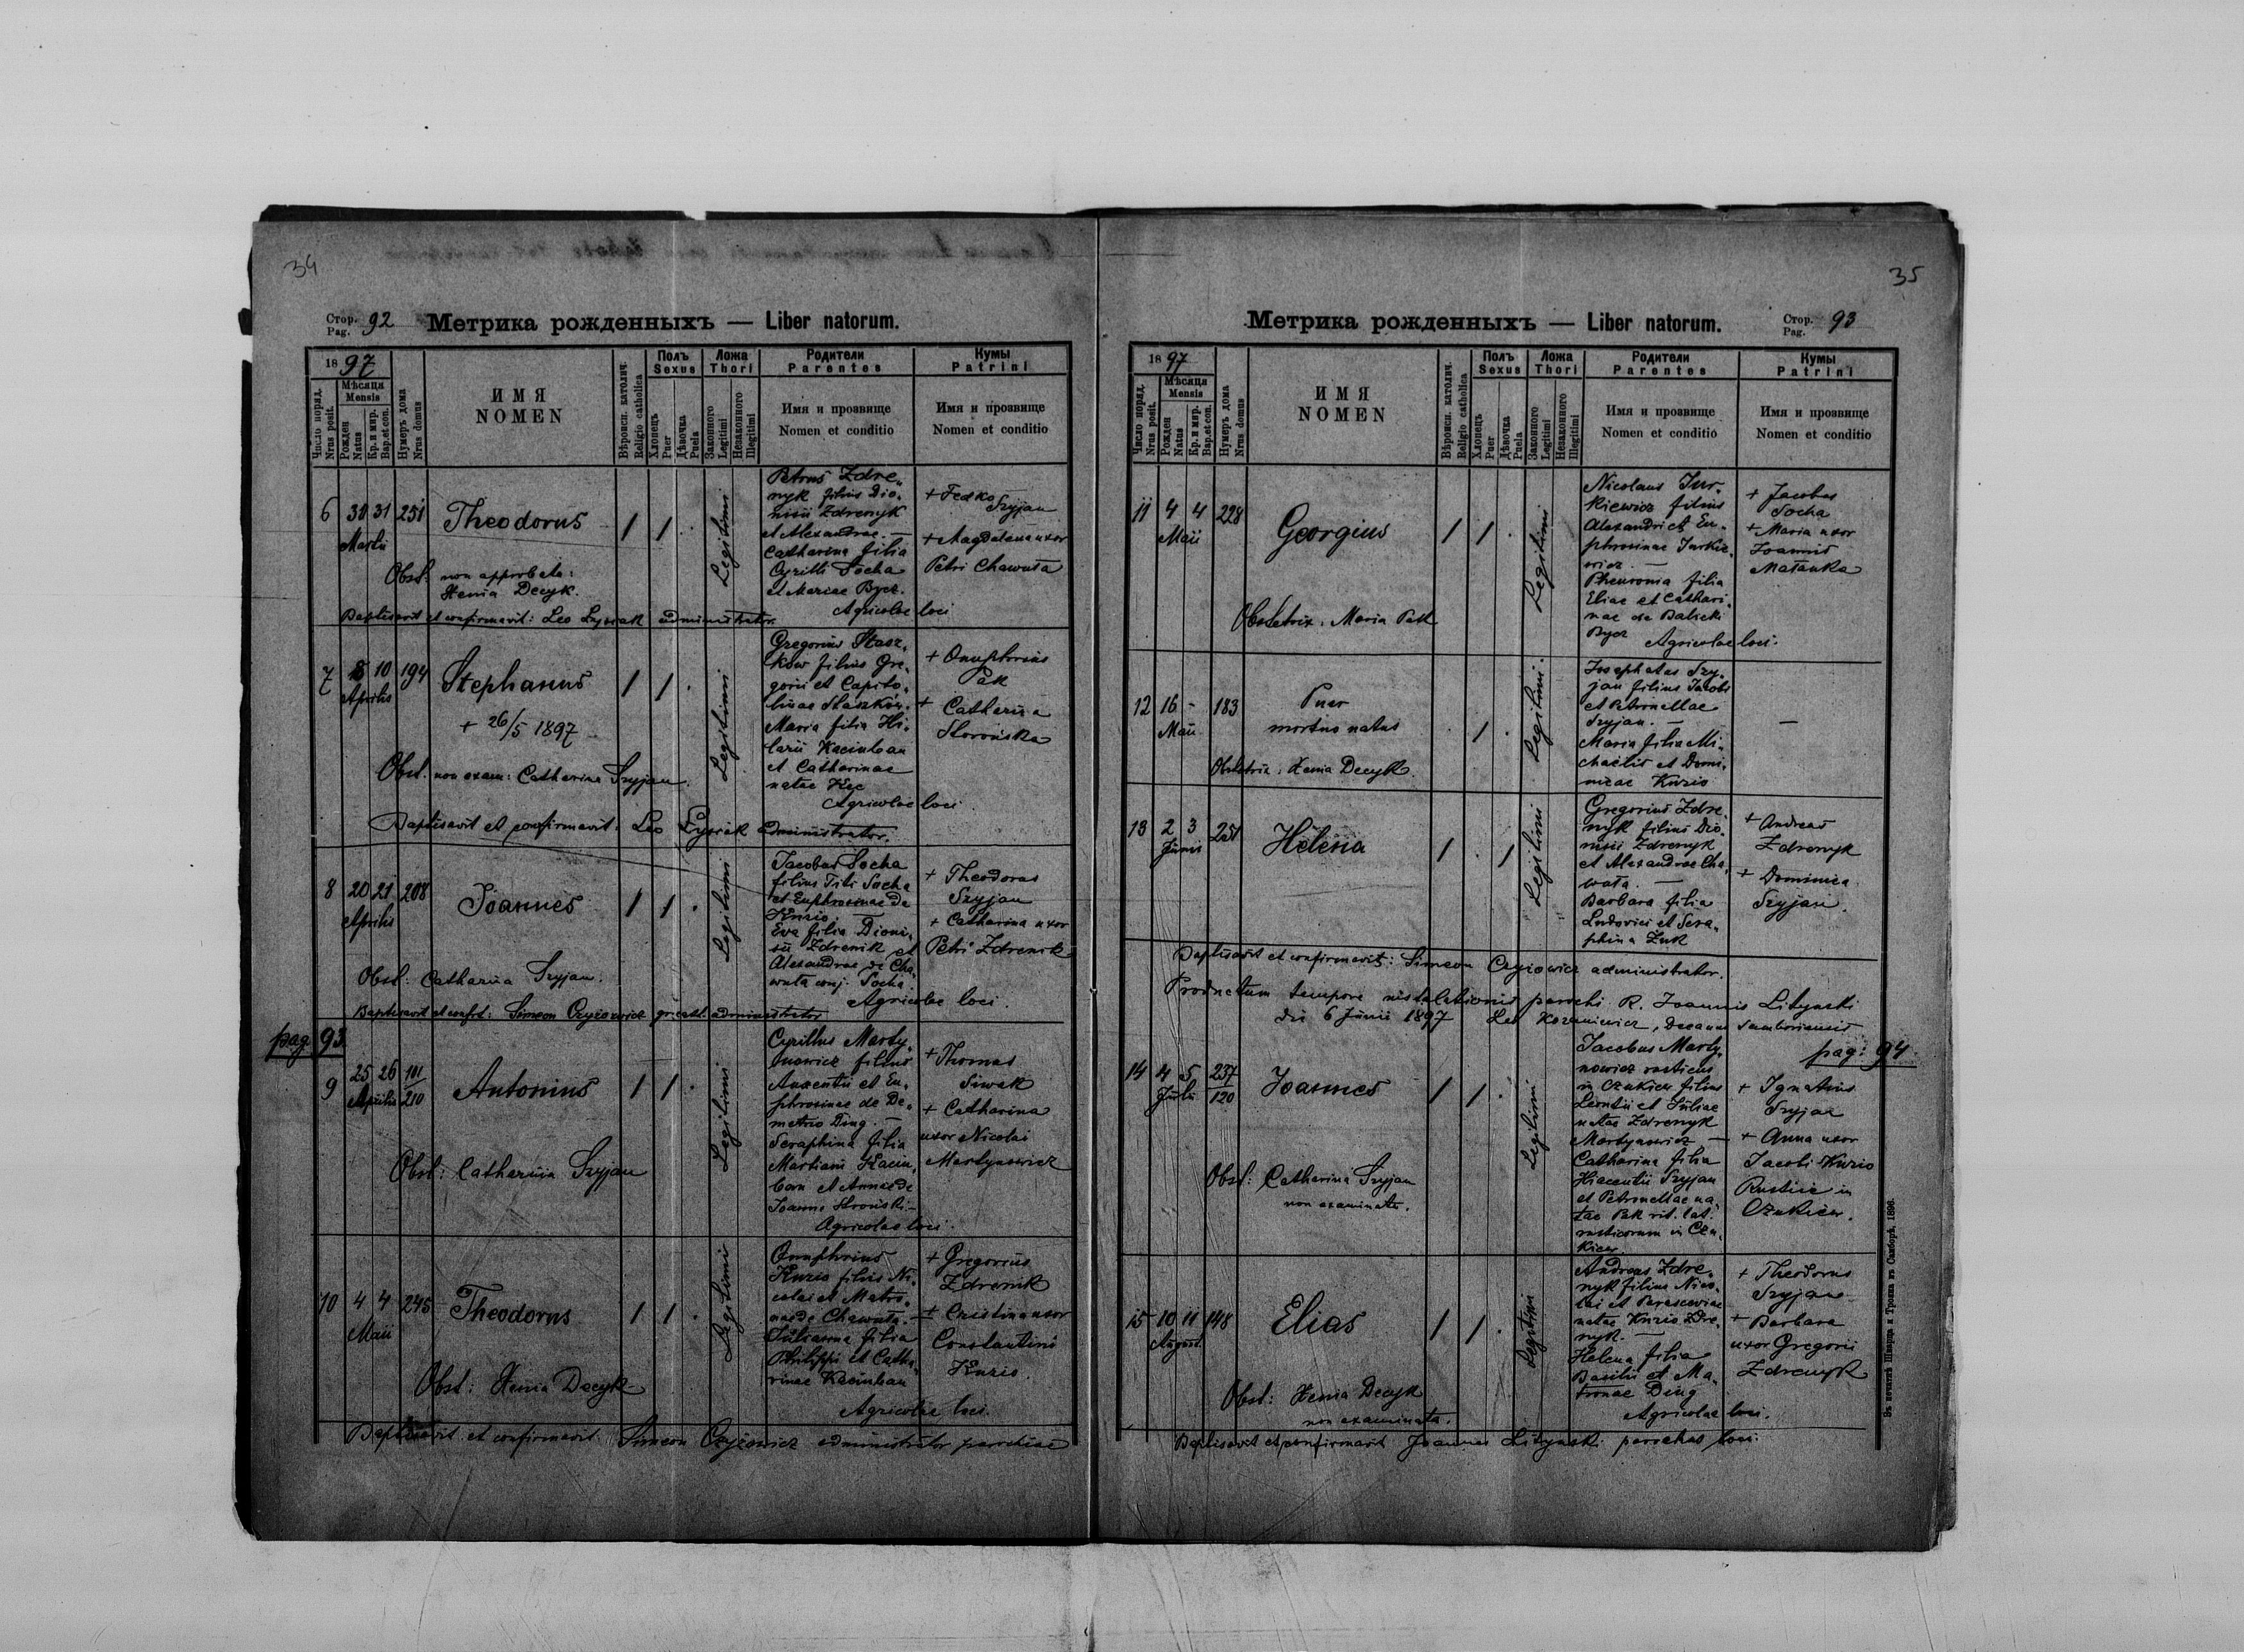 34
Стор.
Pag. 92
Метрика рожденныхъ — Liber natorum.
1897
Число поряд.
Nrus posit.
Мѣсяця
Mensis
Рожден
Natus
Кр. и мѵр.
Bap. et con.
Нумеръ дома
Nrus domus
ИМЯ
NOMEN
Вѣроисп. католич.
Religio catholica
Полъ
Sexus
Хлопецъ
Puer
Дѣвочка
Puela
Ложа
Thori
Законного
Legitimi
Незаконного
Illegitimi
Родители
Parentes
Имя и прозвище
Nomen et conditio
Кумы
Patrini
Имя и прозвище
Nomen et conditio
6 30 31 251
Martii
Theodorus
Obst. non approbata:
Xenia Decyk.
Legitimi
Petrus Zdre„
nyk filius Dio„
nisii Zdrenyk
et Alexandrae. —
Catharina filia
Cyrilli Socha
et Mariae Bycz.
Agricolae loci
+ Fedko
Szyjan
+ Magdalena uxor
Petri Chawuta
Baptisavit et confirmavit: Leo Lysiak administrator.
7 8 10 194
Aprilis
Stephanus
+ 26/5 1897
Obst. non exam: Catharina Szyjan
Legitimi
Gregorius Stasz„
kow filius Gre„
gorii et Capito„
linae Staszkow.
Maria filia Hi„
larii Kacimban
et Catharinae
natae Kec
Agricolae loci
+ Onuphrius
Pak
+ Catharina
Slorońska
Baptisavit et confirmavit: Leo Lysiak administrator.
8 20 21 208
Aprilis
Joannes
Obst: Catharina Szyjan.
Legitimi
Jacobus Socha
filius Titi Socha
et Euphrosinae de
Kuzio. —
Eva filia Dioni„
sii Zdrenik et
Alexandrae de Cha„
wuta conj. Socha.
Agricolae loci.
+ Theodorus
Szyjan
+ Catharina uxor
Petri Zdrenik
Baptisavit et confir: Simeon Czyżowicz gr. cath. administrator
pag. 93.
9 25 26 101/210
Aprilis
Antonius
Obst: Catharina Szyjan
Legitimi
Cyrillus Marty„
nowicz filius
Auxentii et Eu„
phrosinae de De„
metrio Ding. —
Seraphina filia
Martiani Kacim„
ban et Annae de
Joanne Sloroński. —
Agricolae loci.
+ Thomas
Siwak
+ Catharina
uxor Nicolai
Martynowicz
10 4 4 245
Maii
Theodorus
Obst: Xenia Decyk
Legitimi
Onuphrius
Kuzio filius Ni„
colai et Matro„
nae de Chawuta. —
Julianna filia
Philippi et Catha„
rinae Kacimban
Agricolae loci.
+ Gregorius
Zdrenik
+ Cristina uxor
Constantini
Kuzio.
Baptisavit et confirmavit Simeon Czyżowicz administrator parochiae
35
Метрика рожденныхъ — Liber natorum.
Стор.
Pag. 93
1897
Число поряд.
Nrus posit.
Мѣсяця
Mensis
Рожден
Natus
Кр. и мѵр.
Bap. et con.
Нумеръ дома
Nrus domus
ИМЯ
NOMEN
Вѣроисп. католич.
Religio catholica
Полъ
Sexus
Хлопецъ
Puer
Дѣвочка
Puela
Ложа
Thori
Законного
Legitimi
Незаконного
Illegitimi
Родители
Parentes
Имя и прозвище
Nomen et conditio
Кумы
Patrini
Имя и прозвище
Nomen et conditio
11 4 4 228
Maii
Georgius
Obstetrix: Maria Pak
Legitimi
Nicolaus Jur„
kiewicz filius
Alexandri et Eu„
phrosinae Jurkie„
wicz. —
Pheuronia filia
Eliae et Cathari„
nae de Balicki
Bycz
Agricolae loci.
+ Jacobus
Socha
+ Maria uxor
Joannis
Matanka
12 16 - 183
Maii
Puer
mortuo natus
Obstetrix: Xenia Decyk
Legitimi
Josephatus Szy„
jan filius Jacobi
et Petronellae
Szyjan. —
Maria filia Mi„
chaelis et Domi„
nicae Kuzio
—
13 2 3 251
Junii
Helena
Legitimi
Gregorius Zdre„
nyk filius Dio„
nisii Zdrenyk
et Alexandrae Cha„
wuta. —
Barbara filia
Ludovici et Sera„
phina Żuk
+ Andreas
Zdrenyk
+ Dominica
Szyjan.
Baptisavit et confirmavit: Simeon Czyżowicz administrator.
Productum tempore instalationis parochi R. Joannis Litynski
die 6 Junii 1897 Leo Kozaniewicz, Decanus Samboriensis
pag: 94
14 4 5 237/120
Julii
Joannes
Obst: Catharina Szyjan
non examinata.
Legitimi
Jacobus Marty„
nowicz rusticus
in Czukiew filius
Leontii et Juliae
natae Zdrenyk
Martynowicz —
Catharina filia
Hiacentii Szyjan
et Petronellae na„
tae Pak rit. lat.
rusticorum in Czu„
kiew.
+ Ignatius
Szyjan
+ Anna uxor
Jacobi Kuzio
Rustici in
Czukiew.
15 10 11 148
August.
Elias
Obst: Xenia Decyk
non examinata.
Legitimi
Andreas Zdre„
nyk filius Nico„
lai et Parasceviae
natae Kuzio Zdre„
nyk. —
Helena filia
Basilii et Ma„
tronae Ding
Agricolae loci.
+ Theodorus
Szyjan
+ Barbara
uxor Gregorii
Zdrenyk
Baptisavit et confirmavit Joannes Litynski parochus loci.
Въ печатнѣ Шварца и Трояна въ Самборѣ, 1896.